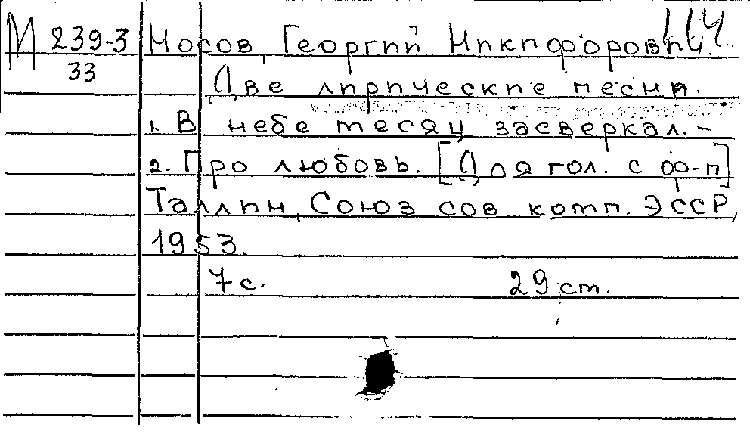 М 239-3
33
114.
Носов, Георгий Никифорович.
Две лирические песни.
1. В небе месяц засверкал. –
2. Про любовь. [Для гол. с ф-п]
Таллин, Союз сов. комп. ЭССР,
1953.
7 с. 29 см.